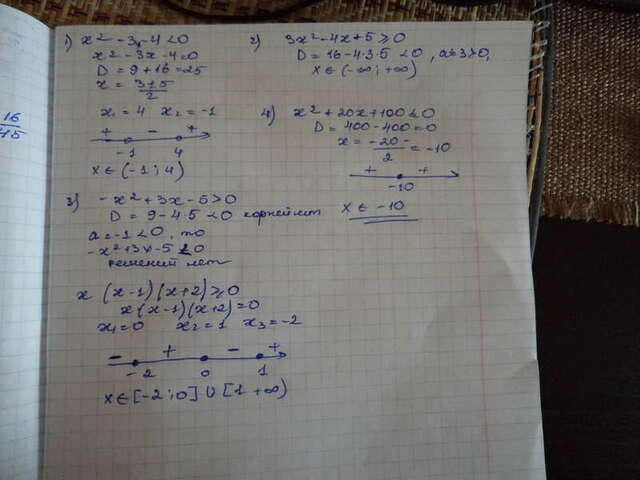 16
45
1) x² - 3x - 4 < 0
x² - 3x - 4 = 0
D = 9 + 16 = 25
x = 3±5
2
x₁ = 4 x₂ = -1
+ - +
-1 4
x ∈ (-1; 4)
2) 3x² - 4x + 5 ≥ 0
D = 16 - 4·3·5 < 0, a = 3 > 0,
x ∈ (-∞; +∞)
4) x² + 20x + 100 ≤ 0
D = 400 - 400 = 0
x = -20 = -10
2
+ +
-10
x ∈ -10
3) -x² + 3x - 5 > 0
D = 9 - 4·5 < 0 корней нет
a = -1 < 0, то
-x² + 3x - 5 < 0
решений нет
x (x-1)(x+2) ≥ 0
x (x-1)(x+2) = 0
x₁ = 0 x₂ = 1 x₃ = -2
- + - +
-2 0 1
x ∈ [-2; 0] ∪ [1 +∞)